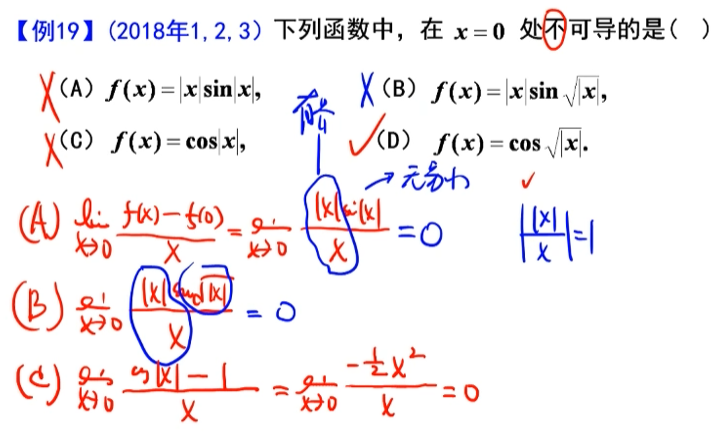 【例19】(2018年1,2,3) 下列函数中，在 x=0 处不可导的是( )
(A) f(x)=|x|sin|x|, (B) f(x)=|x|sin√|x|,
有界
(C) f(x)=cos|x|, (D) f(x)=cos√|x|.
→无穷小
(A) lim x→0 (f(x)-f(0))/x = lim x→0 |x|sin|x|/x = 0 ||x|/x|=1
(B) lim x→0 |x|sin√|x|/x = 0
(C) lim x→0 (cos|x|-1)/x = lim x→0 (-1/2 x²)/x = 0